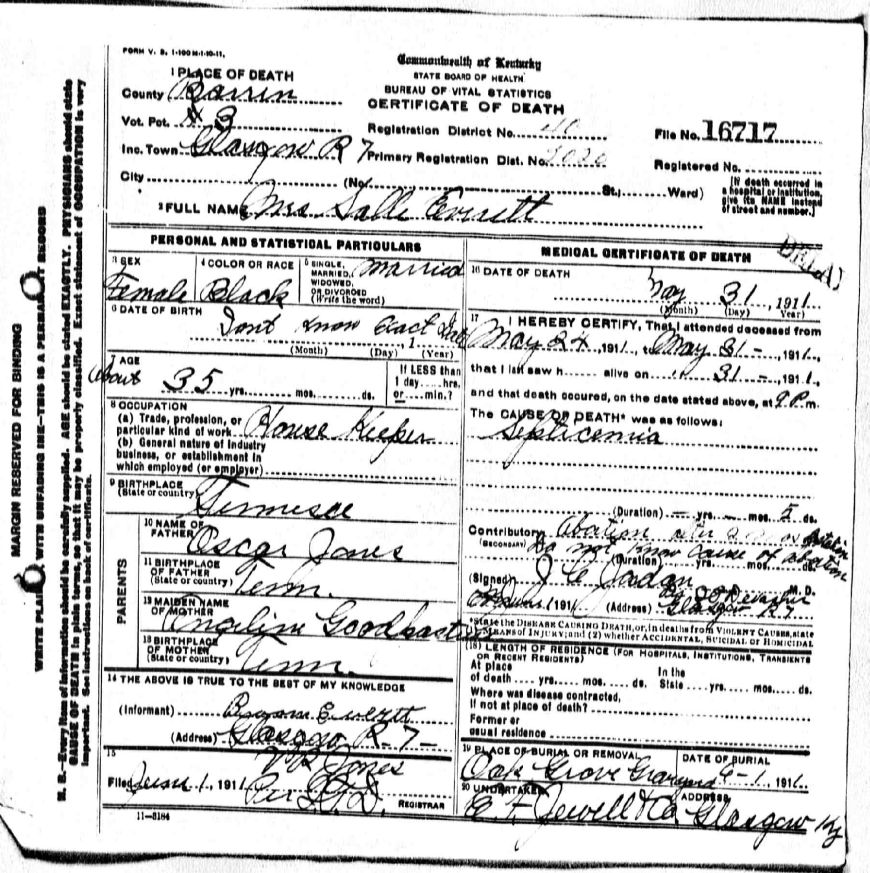 FORM V. S. 1-100M-1-10-11.
Commonwealth of Kentucky
STATE BOARD OF HEALTH
BUREAU OF VITAL STATISTICS
CERTIFICATE OF DEATH
1 PLACE OF DEATH
County Barren
Vot. Pct. # 3
Registration District No. 40
File No. 16717
Inc. Town Glasgow R 7
Primary Registration Dist. No. 2020
Registered No.
City (No. St., Ward)
[If death occurred in a hospital or institution, give its NAME instead of street and number.]
2 FULL NAME Mrs Salle Everett
PERSONAL AND STATISTICAL PARTICULARS
3 SEX Female
4 COLOR OR RACE Black
5 SINGLE, MARRIED, WIDOWED, OR DIVORCED (Write the word) Married
6 DATE OF BIRTH Dont know Exact Date
(Month) (Day) , 1 (Year)
7 AGE about 35 yrs. mos. ds.
If LESS than 1 day hrs. or min.?
8 OCCUPATION
(a) Trade, profession, or particular kind of work House Keeper
(b) General nature of industry business, or establishment in which employed (or employer)
9 BIRTHPLACE
(State or country) Tennesee
PARENTS
10 NAME OF FATHER Oscar Jones
11 BIRTHPLACE OF FATHER (State or country) Tenn.
12 MAIDEN NAME OF MOTHER Angeline
13 BIRTHPLACE OF MOTHER (State or country) Tenn.
14 THE ABOVE IS TRUE TO THE BEST OF MY KNOWLEDGE
(Informant) Everett
(Address) Glasgow R-7-
15
Filed June 1, 1911 Jones
Per REGISTRAR
11-3184
MEDICAL CERTIFICATE OF DEATH
16 DATE OF DEATH
May 31, 1911
(Month) (Day) (Year)
17 I HEREBY CERTIFY, That I attended deceased from
May 24, 1911, to May 31-, 1911,
that I last saw h alive on " 31-, 1911,
and that death occured, on the date stated above, at 9 P. m.
The CAUSE OF DEATH* was as follows:
Septicemia
(Duration) - yrs. - mos. 5 ds.
Contributory Abortion
(SECONDARY) Do not know cause of abortion
(Duration) yrs. mos. ds.
(Signed) M. D.
1911 (Address) Glasgow R 7
*State the DISEASE CAUSING DEATH, or, in deaths from VIOLENT CAUSES, state
MEANS OF INJURY; and (2) whether ACCIDENTAL, SUICIDAL or HOMICIDAL
(18) LENGTH OF RESIDENCE (FOR HOSPITALS, INSTITUTIONS, TRANSIENTS OR RECENT RESIDENTS)
At place of death yrs. mos. ds. In the State yrs. mos. ds.
Where was disease contracted, If not at place of death?
Former or usual residence
19 PLACE OF BURIAL OR REMOVAL Oak Grove Graveyard
DATE OF BURIAL 6-1, 1911
20 UNDERTAKER E F Jewell & Co.
ADDRESS Glasgow Ky
MARGIN RESERVED FOR BINDING
WRITE PLAINLY, WITH UNFADING INK—THIS IS A PERMANENT RECORD
N. B.—Every item of information should be carefully supplied. AGE should be stated EXACTLY. PHYSICIANS should state
CAUSE OF DEATH in plain terms, so that it may be properly classified. Exact statement of OCCUPATION is very
important. See instructions on back of certificate.